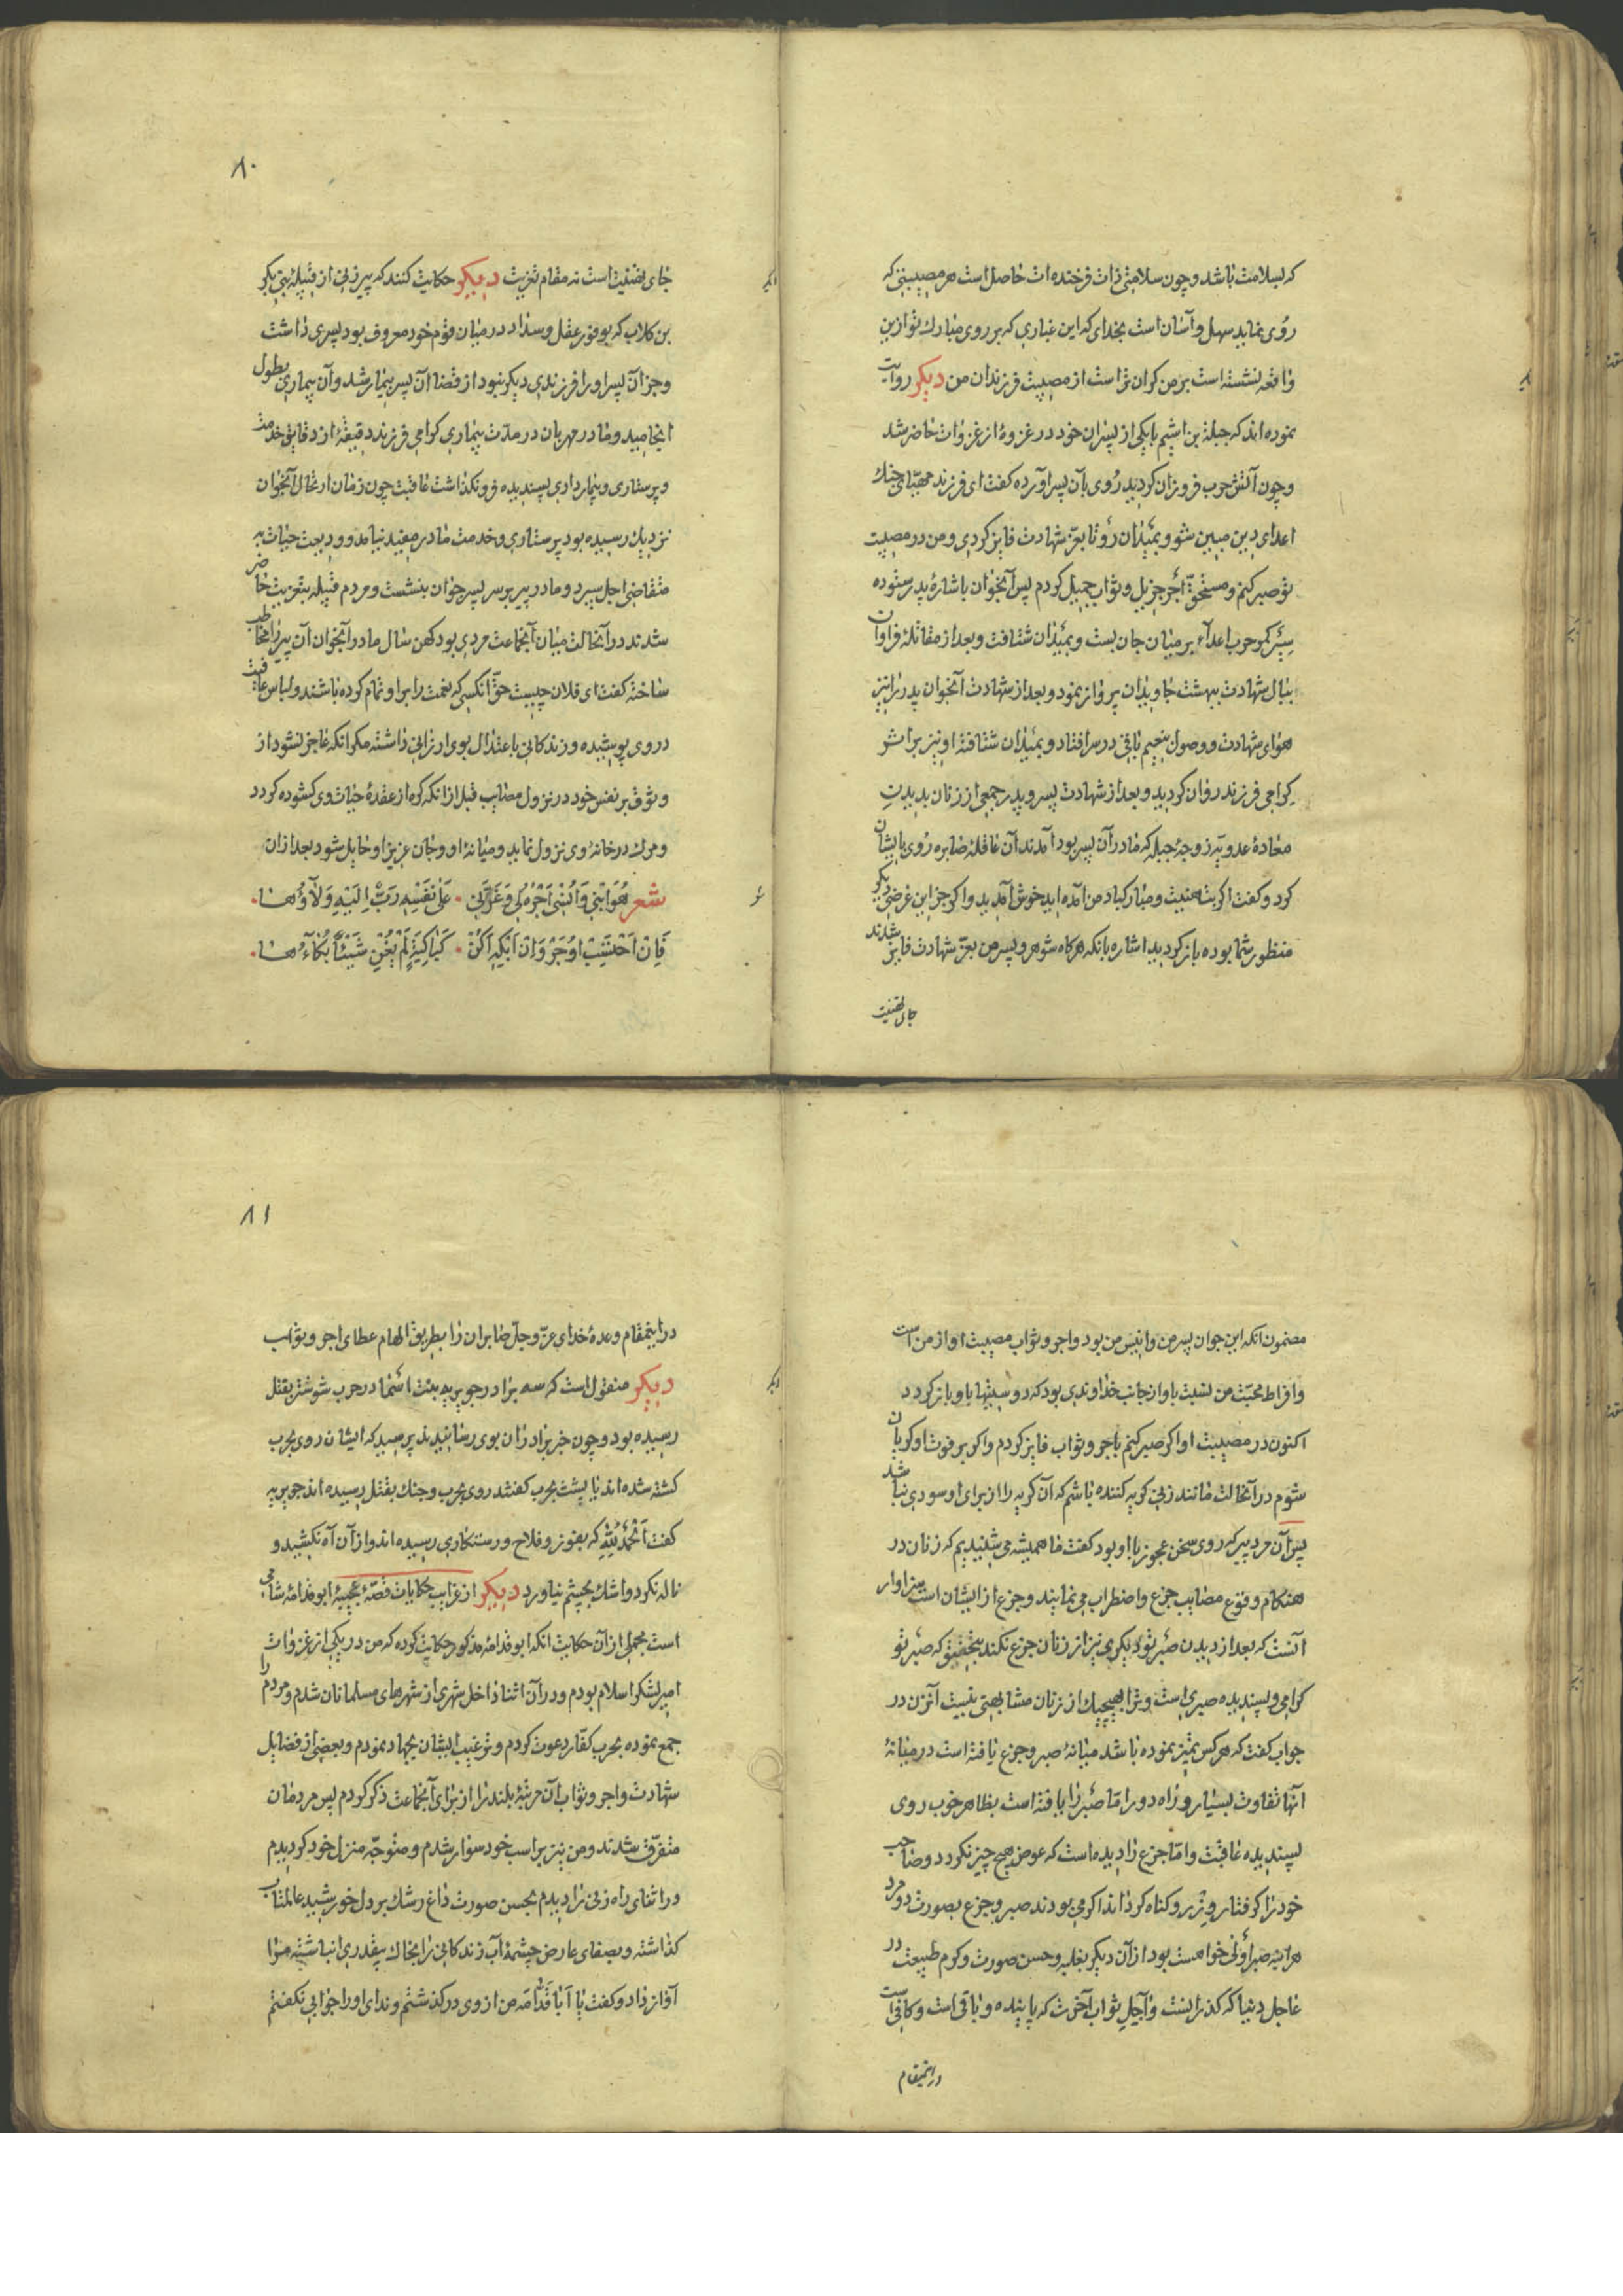 که بسلامت باشد و چون سلامتی ذات فرخنده ات حاصل است هر مصیبتی که
روی نماید سهل و آسان است بخدای که این غباری که بر روی مبارک تو ازین
واقعه نشسته است بر من کران تر است از مصیبت فرزندان من دیکر روایت
نموده اند که جبلة بن اشیم با یکی از پسران خود در غزوهٔ از غزوات حاضر شد
و چون آتش حرب فروزان کردید روی بآن پسر آورده کفت ای فرزند مهیای جنک
اعدای دین مبین شو و بمیدان رو تا بعزّ شهادت فایز کردی و من در مصیبت
تو صبر کنم و مستحقّ اجر جزیل و ثواب جمیل کردم پس آنجوان باشارهٔ پدر ستوده
سیر کمر حرب اعداء بر میان جان بست و بمیدان شتافت و بعد از مقاتلهٔ فراوان
ببال شهادت ببهشت جاویدان پرواز نمود و بعد از شهادت آنجوان پدر را نیز
هوای شهادت و وصول بنعیم باقی در سر افتاد و بمیدان شتافته او نیز بر اثر
کرامی فرزند روان کردید و بعد از شهادت پسر و پدر جمعی از زنان بدیدن
معاذهٔ عدویه زوجهٔ جبله که مادر آن پسر بود آمدند آن عاقلهٔ صابره روی بایشان
کرد و کفت اکر بتهنیت و مبارکباد من آمده اید خوش آمدید و اکر جز این غرضی دیکر
منظور شما بوده باز کردید اشاره بانکه هرکاه شوهر و پسر من بعزّ شهادت فایز شدند
جای تهنیت
۸۰
جای تهنیت است نه مقام تعزیت دیکر حکایت کنند که پیرزنی از قبیلهٔ بنی بکر
بن کلاب که بوفور عقل و سداد در میان قوم خود معروف بود پسری داشت
و جز آن پسر او را فرزندی دیکر نبود از قضا آن پسر بیمار شد و آن بیماری بطول
انجامید و مادر مهربان در مدّت بیماری کرامی فرزند دقیقهٔ از دقایق خدمت
و پرستاری و بیمارداری پسندیده فرو نکذاشت عاقبت چون زمان ارتحال آنجوان
نزدیک رسیده بود پرستاری و خدمت مادر مفید نیامد و ودیعت حیات به
متقاضی اجل سپرد و مادر پیر بر سر پسر جوان بنشست و مردم قبیله بتعزیت حاضر
شدند در آنحالت میان آنجماعت مردی بود کهن سال مادر آنجوان آن پیر را مخاطب
ساخته کفت ای فلان چیست حقّ انکسی که نعمت را بر او تمام کرده باشند و لباس عافیت
در وی پوشیده و زندکانی باعتدال بوی ارزانی داشته مکر انکه عاجز نشود از
وثوق بر نفس خود در نزول مصایب قبل از انکه کره از عقدهٔ حیات وی کشوده کردد
و مرک در خانهٔ وی نزول نماید و میانهٔ او و جان عزیز او حایل شود بعد از ان
شعر هُوَ ابْنِی وَ اُنْسِی اَجْرُهُ لِی وَ عَزَّنِی • عَلَى نَفْسِهِ رَبٌّ اِلَیْهِ وَلَاؤُهَا •
فَاِنْ اَحْتَسِبْ اُوجَرْ وَاِنْ اَبْکِهِ اَکُنْ • کَبَاکِیَةٍ لَمْ یُغْنِ شَیْئًا بُکَاؤُهَا •
مضمون انکه این جوان پسر من و انیس من بود و اجر و ثواب مصیبت او از من است
و افراط محبّت من نسبت باو از جانب خداوندی بود که دوستیها باو باز کردد
اکنون در مصیبت او اکر صبر کنم باجر و ثواب فایز کردم و اکر بر فوت او کریان
شوم در آنحالت مانند زنی کریه کننده باشم که آن کریه را از برای او سودی نباشد
پس آن مرد پیر که روی سخن عجوز با او بود کفت ما همیشه می شنیدیم که زنان در
هنکام وقوع مصایب جزع و اضطراب می نمایند و جزع از ایشان است سزاوار
آنست که بعد از دیدن صبر تو دیکری نیز از زنان جزع نکند بتحقیق که صبر تو
کرامی و پسندیده صبری است و ترا بهیچیک از زنان مشابهتی نیست آنزن در
جواب کفت که هر کس تمیز نموده باشد میانهٔ صبر و جزع یافته است در میانهٔ
آنها تفاوت بسیار و راه دور امّا صبر را یافته است بظاهر خوب روی
پسندیده عاقبت و امّا جزع را دیده است که عوض هیچ چیز نکردد و صاحب
خود را کرفتار وزر و کناه کرداند اکر می بودند صبر و جزع بصورت دو مرد
هراینه صبر اولی خواهست بود از آن دیکر بغلبه و حسن صورت و کرم طبیعت در
عاجل دنیا که کذرانست و آجل ثواب آخرت که پاینده و باقی است و کافی است
در اینمقام
۸۱
در اینمقام وعدهٔ خدای عزّ و جلّ صابران را بطریق الهام عطای اجر و ثواب
دیکر منقول است که سه برادر جویریه بنت اسما در حرب شوشتر بقتل
رسیده بود و چون خبر برادران بوی رسانیدند پرسید که ایشان روی بحرب
کشته شده اند یا پشت بحرب کفتند روی بحرب و جنک بقتل رسیده اند جویریه
کفت اَلْحَمْدُ لِلّهِ که بفوز و فلاح و رستکاری رسیده اند و از آن آه نکشید و
ناله نکرد و اشک بچشم نیاورد دیکر از غرایب حکایات قصّهٔ عجیبهٔ ابو قدامهٔ شامی
است مجملی از آن حکایت انکه ابو قدامهٔ مذکور حکایت کرده که من در یکی از غزوات
امیر لشکر اسلام بودم و در آن اثنا داخل شهری از شهرهای مسلمانان شدم و مردم را
جمع نموده بحرب کفّار دعوت کردم و ترغیب ایشان بجهاد نمودم و بعضی از فضایل
شهادت و اجر و ثواب آن مرتبهٔ بلند را از برای آنجماعت ذکر کردم پس مردمان
متفرّق شدند و من نیز بر اسب خود سوار شدم و متوجّه منزل خود کردیدم
در اثنای راه زنی را دیدم بحسن صورت داغ رشک بر دل خورشید عالمتاب
کذاشته و بصفای عارض چشمهٔ آب زندکانی را بخاک بیقدری انباشته مرا
آواز داد و کفت یا اَبا قُدامَه من از وی در کذشتم و ندای او را جوابی نکفتم